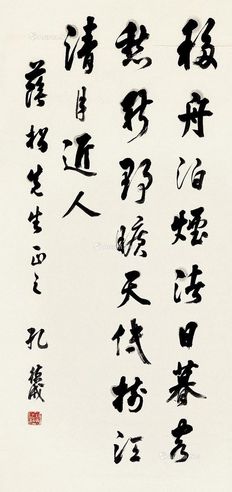 移舟泊煙渚日暮客
愁新野曠天低樹江
清月近人
先生正之 孔德成